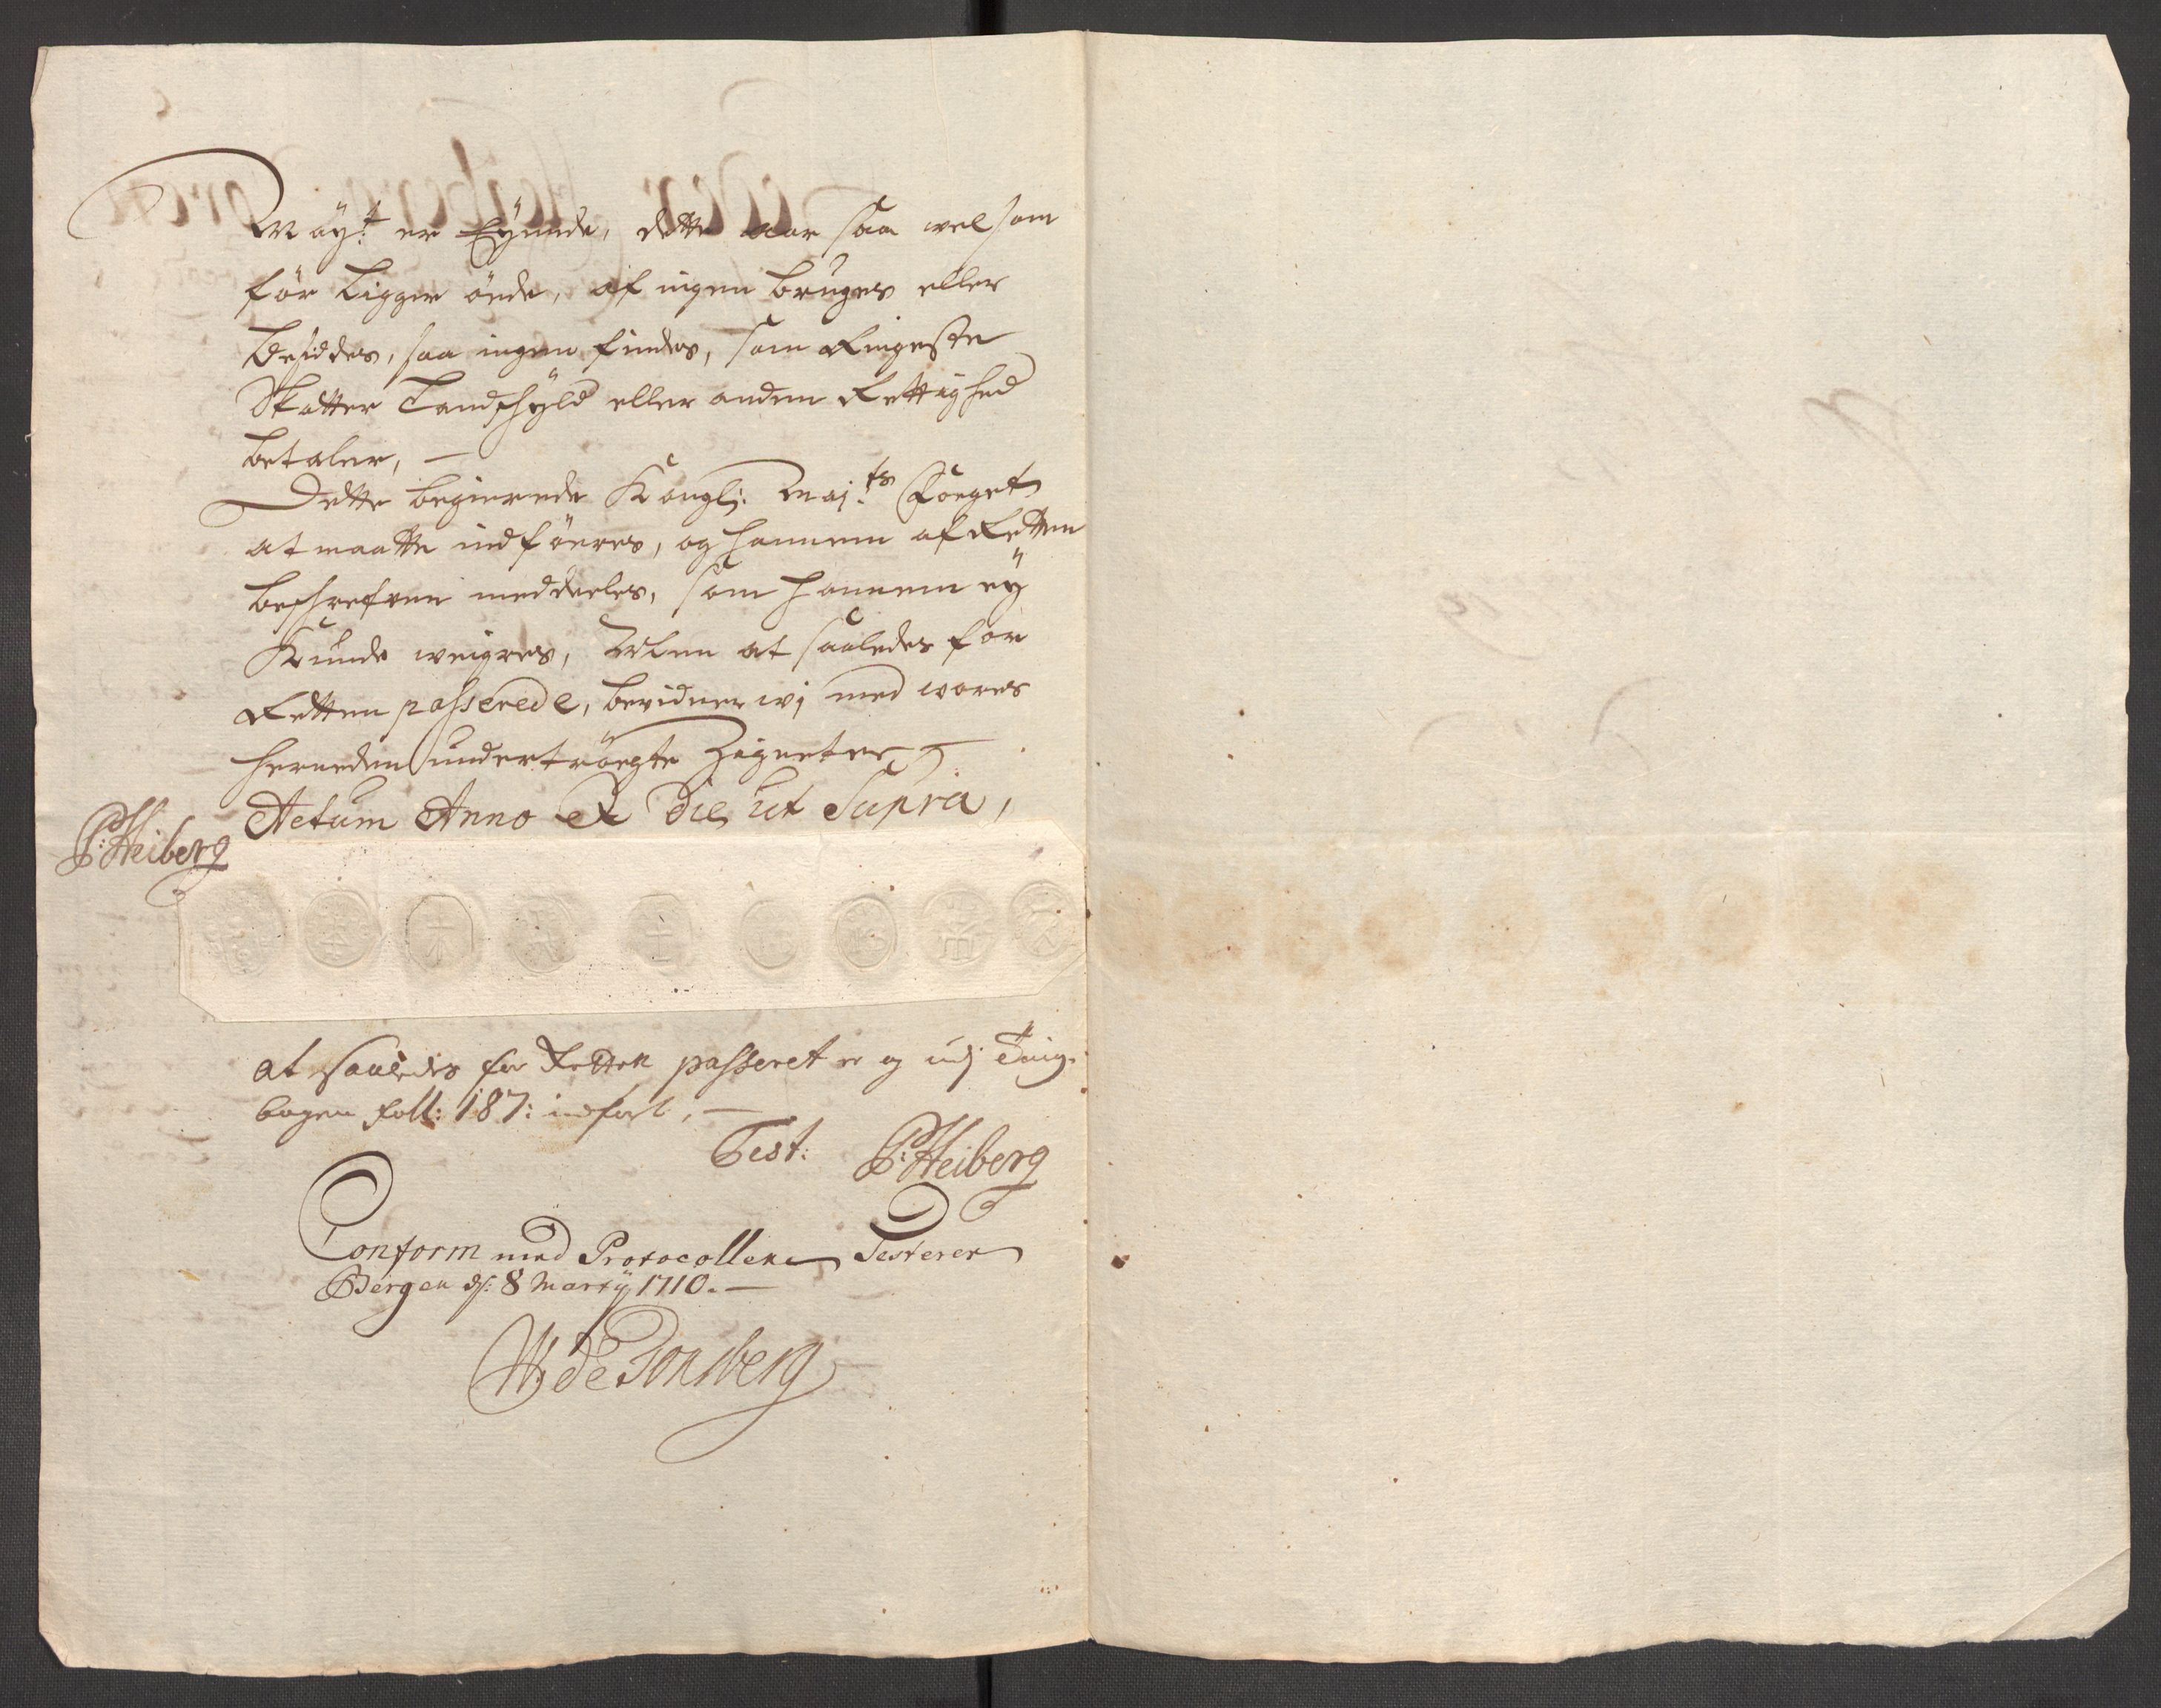 Maÿ:t er Eÿende, dette aar saa vel som
för Ligger öede, af ingen bruges eller
besiddes, saa ingen findes, som Ringeste
Skatter Landschÿld eller anden Rettighed
betaler, —
Dette begierede Kongl: Maj:ts Foeget
at maatte indföeres, og hannem af Retten
beschrefven meddeeles, som hannem eÿ
Kunde veigres, at saaledes for
Retten passerede, bevidner vj med vores
herneden undertröegte Zigneter
Actum Anno & Die ut Supra,
P: Heiberg
at saaledes for Retten passeret er og udj Ting-
bogen foll: 187: indfört, —
Test: P: Heiberg
Conform med Protocollen Testerer
Bergen ds: 8 Martÿ 1710. —
W: de Tonsberg